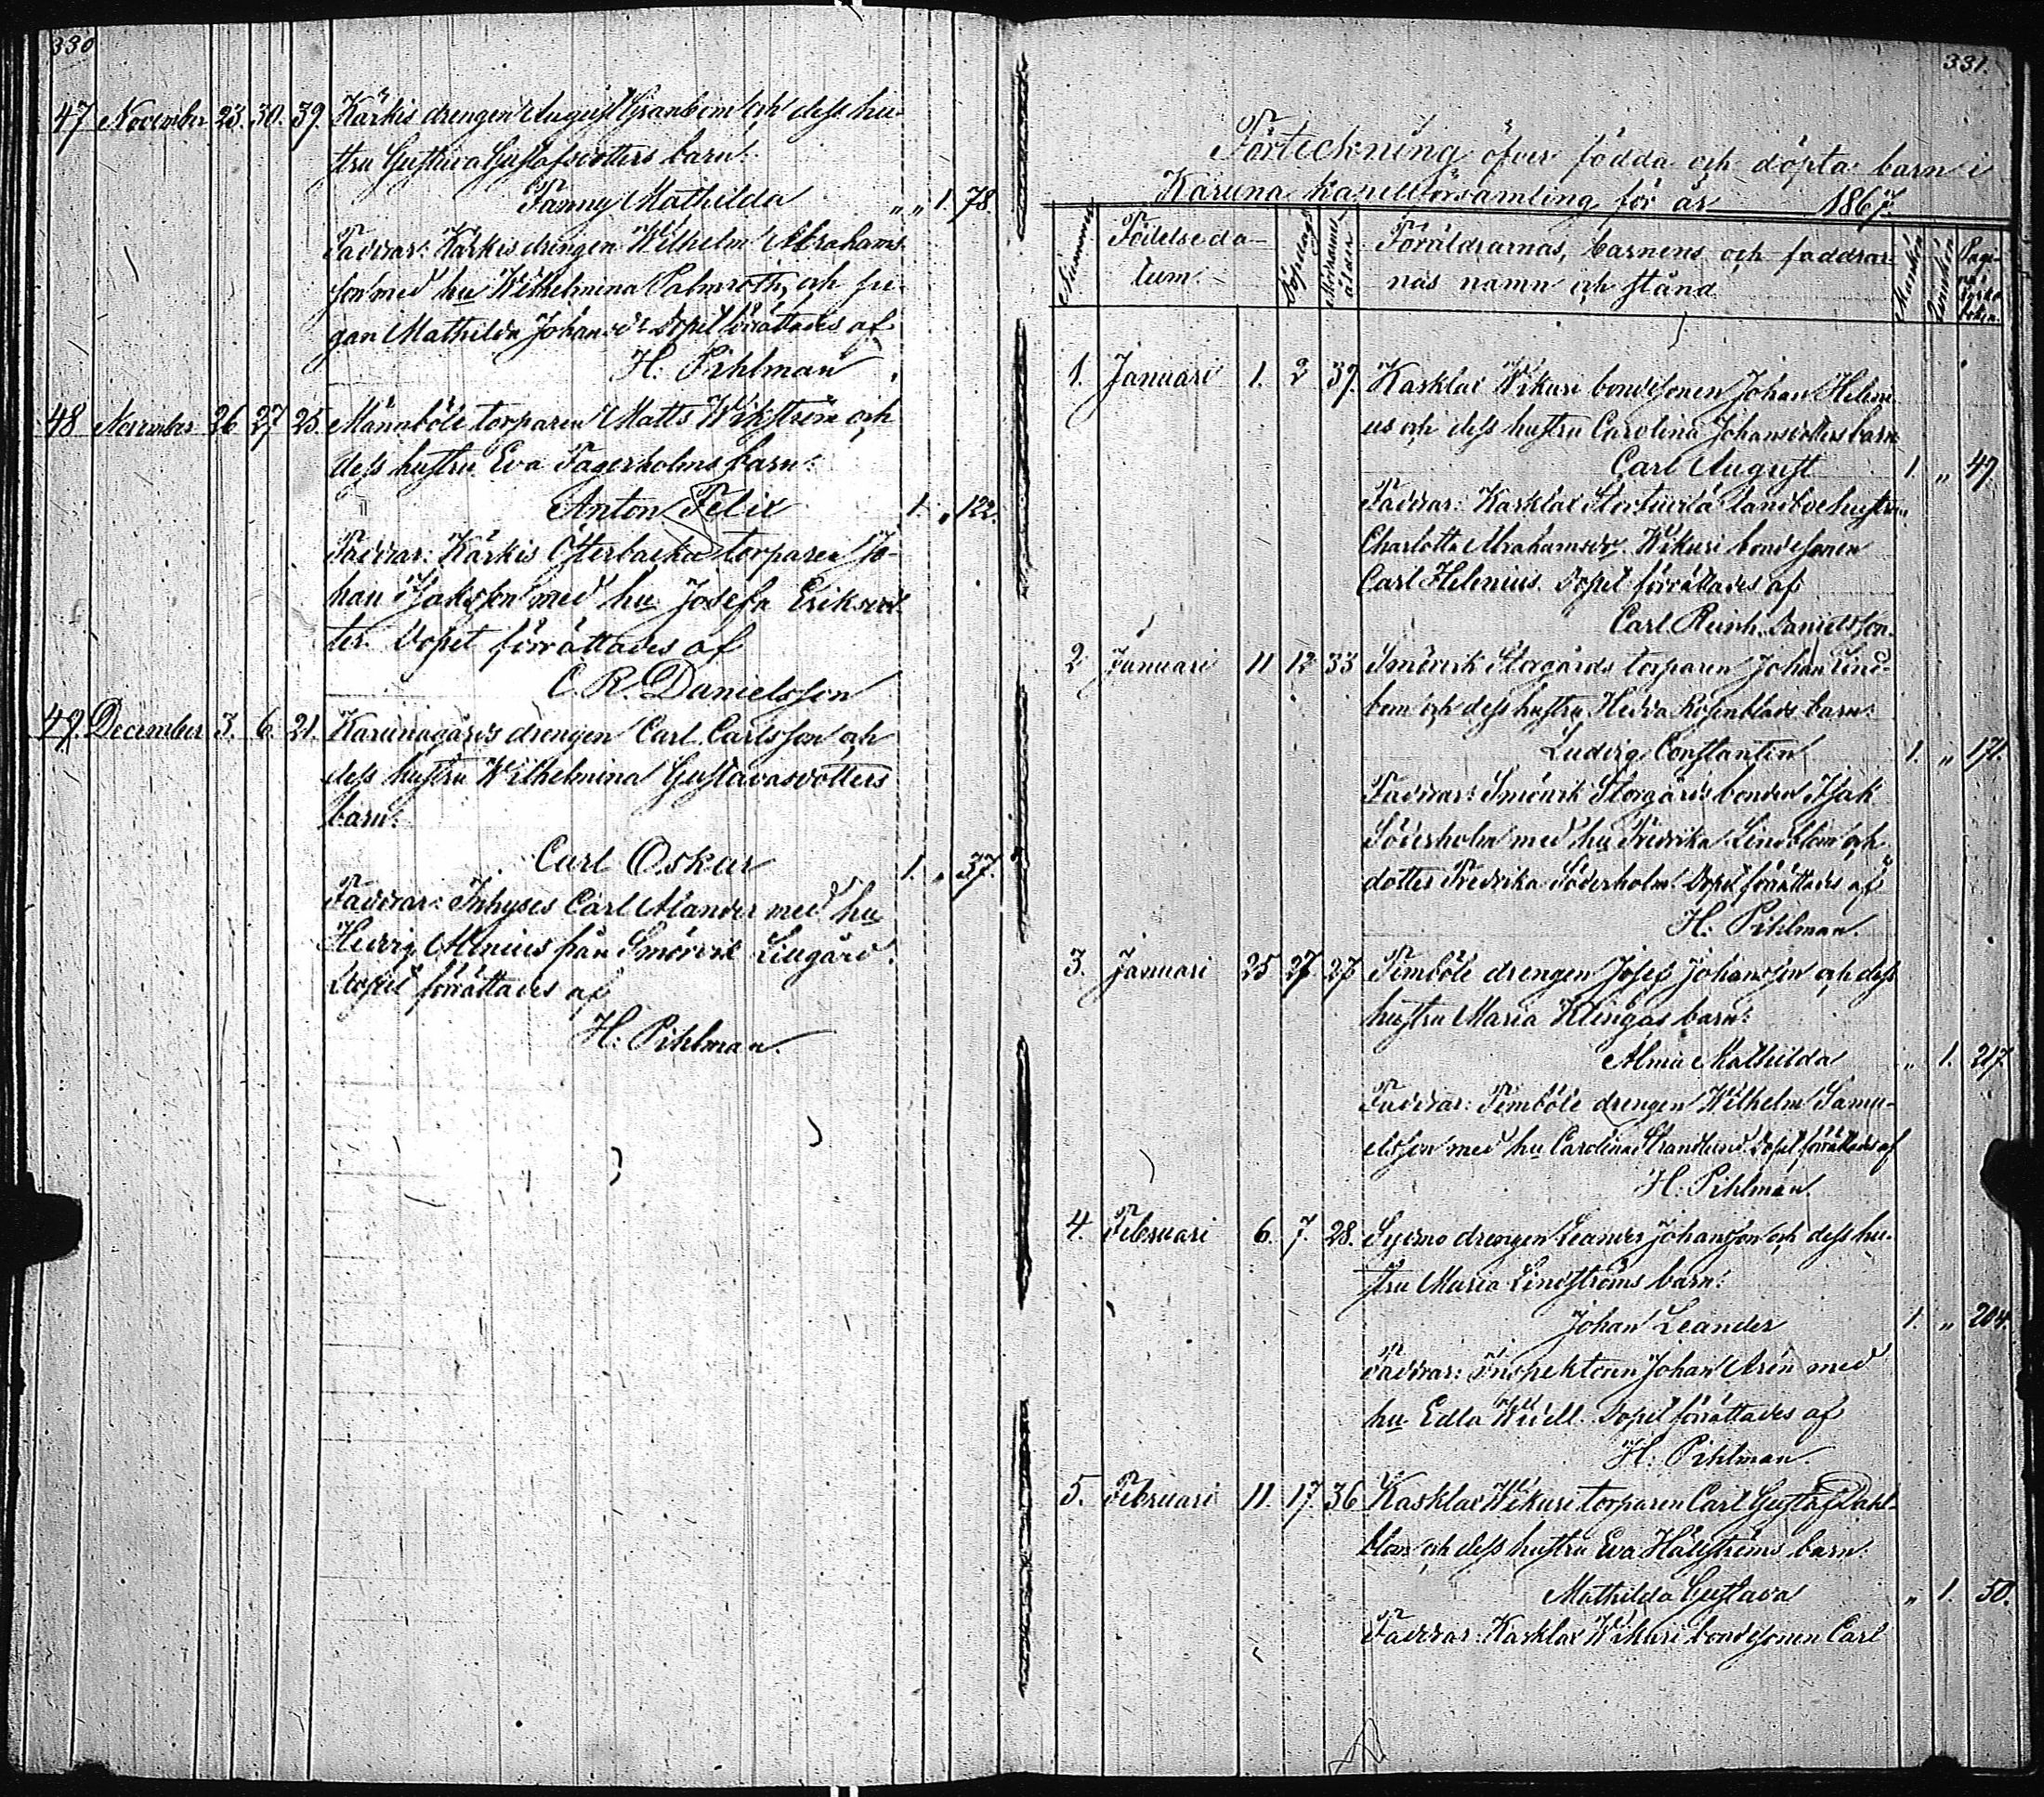 330
47 November 23. 30. 39. Kärkis drengen August Granbom och dess hu-
stru Gustava Gustafsdotters barn:
Fanny Mathilda „ „ 1. 78
Faddrar: Kärkis drengen Wilhelm Abrahams-
son med hu Wilhelmina Palmroth, och pi-
gan Mathilda Johansdr Dopet förrättades af
H. Pihlman
48 November 26 27 25 Månnböle torparen Matts Wikström och
dess hustru Eva Fagerholms barn:
Anton Felix 1. „ 122.
Faddrar: Kärkis Österbacka torparen Jo-
han Isaksson med hu Josefa Eriksdot-
ter. Dopet förrättades af
C. R. Danielsson
49. December 3. 6. 21. Karunagårds drengen Carl Carlsson och
dess hustru Wilhelmina Gustavasdotters
barn:
Carl Oskar 1. „ 37.
Faddrar: Inhyses Carl Alander med hu
Hedvig Alenius från Smörvik Lillgård.
Dopet förrättades af
H. Pihlman.
331.
Förteckning öfver födda och döpta barn i
Karuna kapellförsamling för år 1867.
Nummer Födelseda-
tum. Döpelsedag Modrens ålder Föräldrarnas, barnens och faddrar-
nas namn och stånd Mankön Qvinkön Pagina i kyrkoboken
1. Januari 1. 2 37. Kasklax Wikari bondesonen Johan Heleni-
us och dess hustru Carolina Johansdotters barn
Carl August 1. „ 47.
Faddrar: Kasklax landboehustrun
Charlotta Abrahamsdr. Wikari bondesonen
Carl Helenius. Dopet förrättades af
Carl Reinh. Danielsson.
2 Januari 11 12 33 Smörvik Storgårds torparen Johan Lind-
bom och dess hustru Hedda Rosenblads barn:
Ludvig Constantin 1. „ 171.
Faddrar: Smörvik Storgårds bonden Isak
Söderholm med hu Fredrika Lindblom och
dotter Fredrika Söderholm. Dopet förrättades af
H. Pihlman.
3. Januari 25 27 27 Pemböle drengen Josef Johansson och dess
hustru Maria Klingas barn:
Alma Mathilda „ 1. 217.
Faddrar: Pemböle drengen Wilhelm Samu-
elsson med hu Carolina Strandlund. Dopet förrättades af
H. Pihlman.
4. Februari 6. 7. 28. drengen Leander Johansson och dess hu-
stru Maria Lindströms barn:
Johan Leander 1. „ 204.
Faddrar: Inspektoren Johan Arén med
hu Edla Widell. Dopet förrättades af
H. Pihlman.
5. Februari 11. 17. 36 Kasklax Wikari torparen Carl Gustaf Dahl-
blom och dess hustru Eva Hälströms barn:
Mathilda Gustava „ 1. 50.
Faddrar: Kasklax Wikari bondesonen Carl